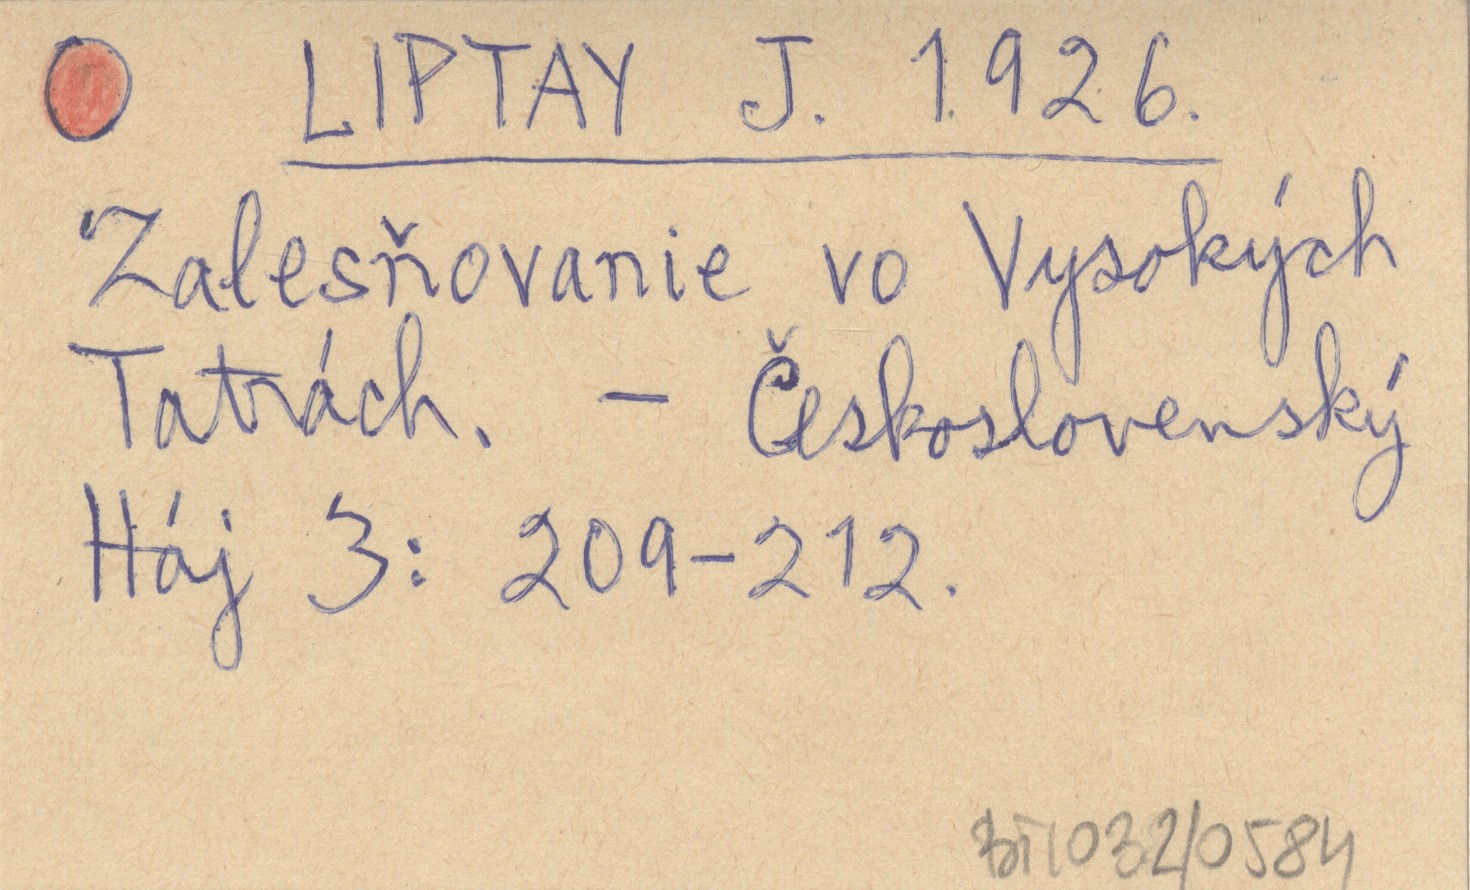 LIPTAY J. 1926.
Zalesňovanie vo Vysokých
Tatrách. – Československý
Háj 3: 209-212.
BT/032/0584